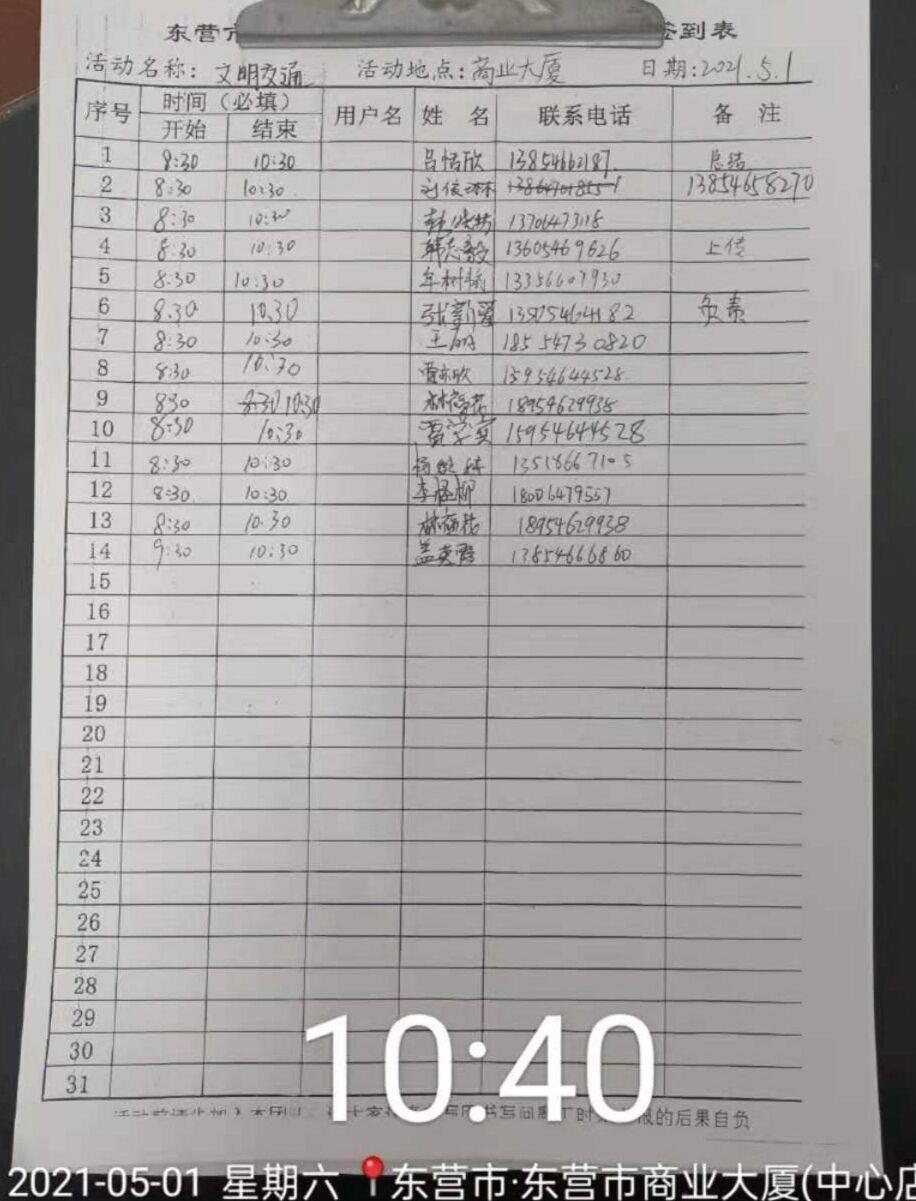 东营市 签到表
活动名称: 文明交通 活动地点: 商业大厦 日期: 2021.5.1
序号 时间（必填） 用户名 姓 名 联系电话 备 注
开始 结束
1 8:30 10:30 13854662187 总结
2 8:30 10:30 13854658270
3 8:30 10:30 13706473118
4 8:30 10:30 韩志毅 13605469626 上传
5 8:30 10:30 13356607930
6 8.30 10.30 13505464182 负责
7 8:30 10:30 王丽 18554730820
8 8:30 10:30 15954644528
9 830 8:30 10:30 18954629938
10 8:30 10:30 15954644528
11 8:30 10:30 13518667105
12 8:30 10:30 18006479557
13 8:30 10.30 18954629938
14 9:30 10:30 13854666860
15
16
17
18
19
20
21
22
23
24
25
26
27
28
29
30
31
10:40
的后果自负
2021-05-01 星期六 东营市·东营市商业大厦(中心店